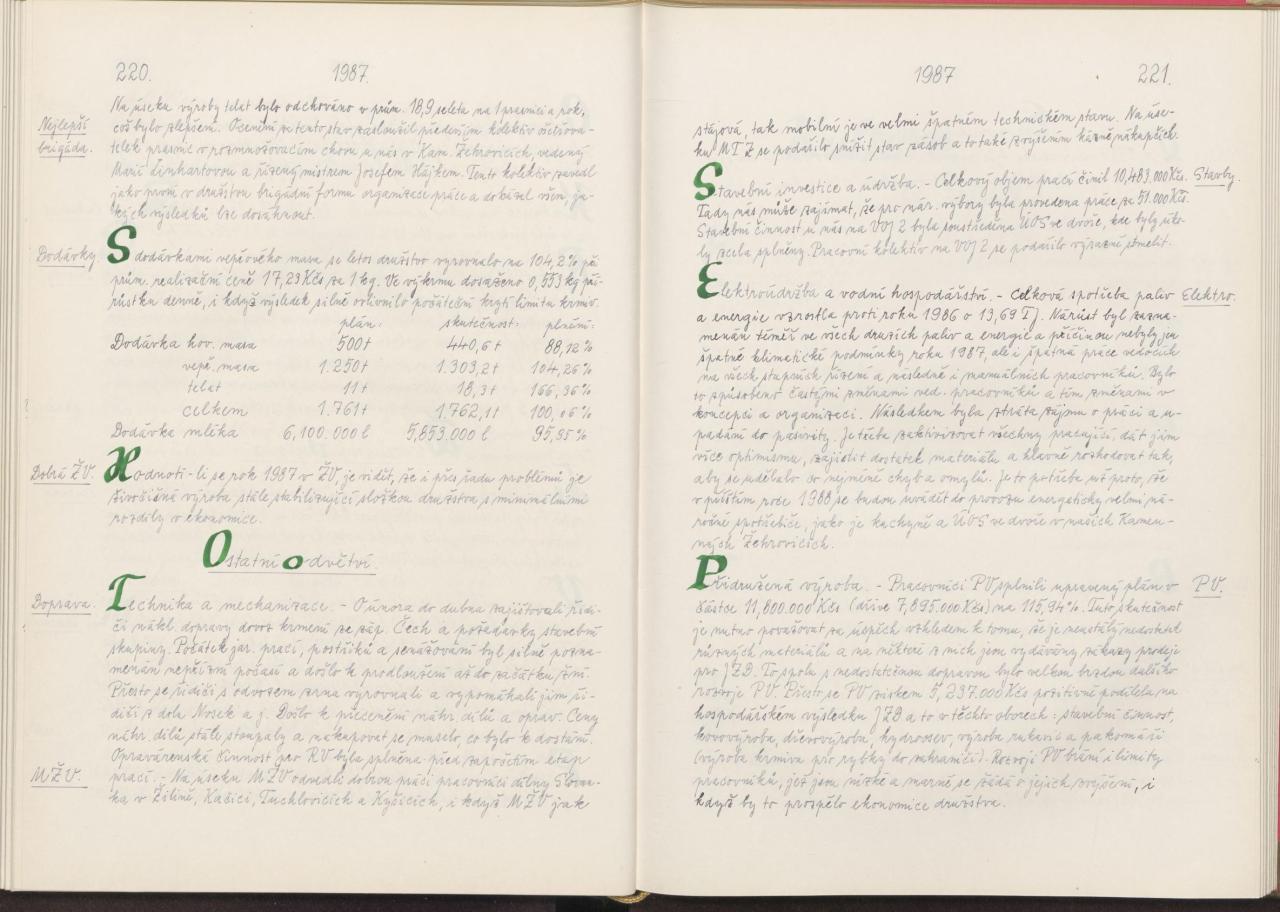 220.
1987.
Na úseku výroby telat bylo odchováno v prům. 18,9 selete na 1 prasnici a rok,
což bylo zlepšení. Ocenění za tento stav zasloužil především kolektiv ošetřova-
Nejlepší
brigáda.
telek prasnic v rozmnožovacím chovu u nás v Kam. Žehrovicích, vedený
Marií Linhartovou a řízený mistrem Josefem Hájkem. Tento kolektiv zavedl
jako první v družstvu brigádní formu organizace práce a dokázal všem, ja-
kých výsledků lze dosáhnout.
Dodávky
S dodávkami vepřového masa se letos družstvo vyrovnalo na 104,2% při
prům. realizační ceně 17,23 Kčs za 1 kg. Ve výkrmu dosaženo 0,553 kg pří-
růstku denně, i když výsledek silně ovlivnilo počáteční krytí limitu krmiv.
plán: skutečnost: plnění:
Dodávka hov. masa 500 t 440,6 t 88,12 %
vepř. masa 1.250 t 1.303,2 t 104,26 %
telat 11 t 18,3 t 166,36 %
celkem 1.761 t 1.762,1 t 100,06 %
Dodávka mléka 6,100.000 l 5,853.000 l 95,95 %
Dobrá ŽV.
Hodnotí-li se rok 1987 v ŽV, je vidět, že i přes řadu problémů je
živočišná výroba stále stabilizující složkou družstva s minimálními
rozdíly v ekonomice.
Ostatní odvětví.
Doprava.
Technika a mechanizace. - Od února do dubna zajišťovali řidi-
či nákl. dopravy dovoz krmení ze záp. Čech a požadavky stavební
skupiny. Počátek jar. prací, postřiků a senážování byl silně pozna-
menán nepřízní počasí a došlo k prodloužení až do začátku žní.
Přesto se řidiči s odvozem zrna vyrovnali a vypomáhali jim ři-
diči z dolu Nosek a j. Došlo k přecenění náhr. dílů a oprav. Ceny
náhr. dílů stále stoupaly a nakupovat se muselo, co bylo k dostání.
Opravárenská činnost pro RV byla splněna před započetím etap
MŽV.
prací. - Na úseku MŽV odvedli dobrou práci pracovníci dílny Slovan-
ka v Žilině, Kačici, Tuchlovicích a Kyšicích, i když MŽV jak
1987
221.
stájová, tak mobilní je ve velmi špatném technickém stavu. Na úse-
ku MTZ se podařilo snížit stav zásob a to také zvýšením kázně nákupčích.
Stavby.
Stavební investice a údržba. - Celkový objem prací činil 10,483.000 Kčs.
Tady nás může zajímat, že pro nár. výbory byla provedena práce za 51.000 Kčs.
Stavební činnost u nás na VOJ 2 byla soustředěna ÚOS ve dvoře, kde byly úko-
ly zcela splněny. Pracovní kolektiv na VOJ 2 se podařilo výrazně stmelit.
Elektro.
Elektroúdržba a vodní hospodářství. - Celková spotřeba paliv
a energie vzrostla proti roku 1986 o 13,69 TJ. Nárůst byl zazna-
menán téměř ve všech druzích paliv a energií a příčinou nebyly jen
špatné klimatické podmínky roku 1987, ale i špatná práce vedoucích
na všech stupních řízení a následně i manuálních pracovníků. Bylo
to způsobeno častými změnami ved. pracovníků a tím změnami v
koncepci a organizaci. Následkem byla ztráta zájmu o práci a u-
padání do pasivity. Je třeba zaktivizovat všechny pracující, dát jim
více optimismu, zajistit dostatek materiálu a hlavně rozhodovat tak,
aby se udělalo co nejméně chyb a omylů. Je to potřeba už proto, že
v příštím roce 1988 se budou uvádět do provozu energeticky velmi ná-
ročné spotřebiče, jako je kuchyně a ÚOS ve dvoře v našich Kamen-
ných Žehrovicích.
PV.
Přidružená výroba. - Pracovníci PV splnili upravený plán v
částce 11,800.000 Kčs (dříve 7,895.000 Kčs) na 115,94%. Tuto skutečnost
je nutno považovat za úspěch vzhledem k tomu, že je neustálý nedostatek
různých materiálů a na některé z nich jsou vydávány zákazy prodeje
pro JZD. To spolu s nedostatečnou dopravou bylo velkou brzdou dalšího
rozvoje PV. Přesto se PV ziskem 5,237.000 Kčs pozitivně podílela na
hospodářském výsledku JZD a to v těchto oborech: stavební činnost,
kovovýroba, dřevovýroba, hydroosev, výroba rukavic a pakomáři
(výroba krmiva pro rybky do zahraničí). Rozvoji PV brání i limity
pracovníků, jež jsou nízké a marně se žádá o jejich zvýšení, i
když by to prospělo ekonomice družstva.